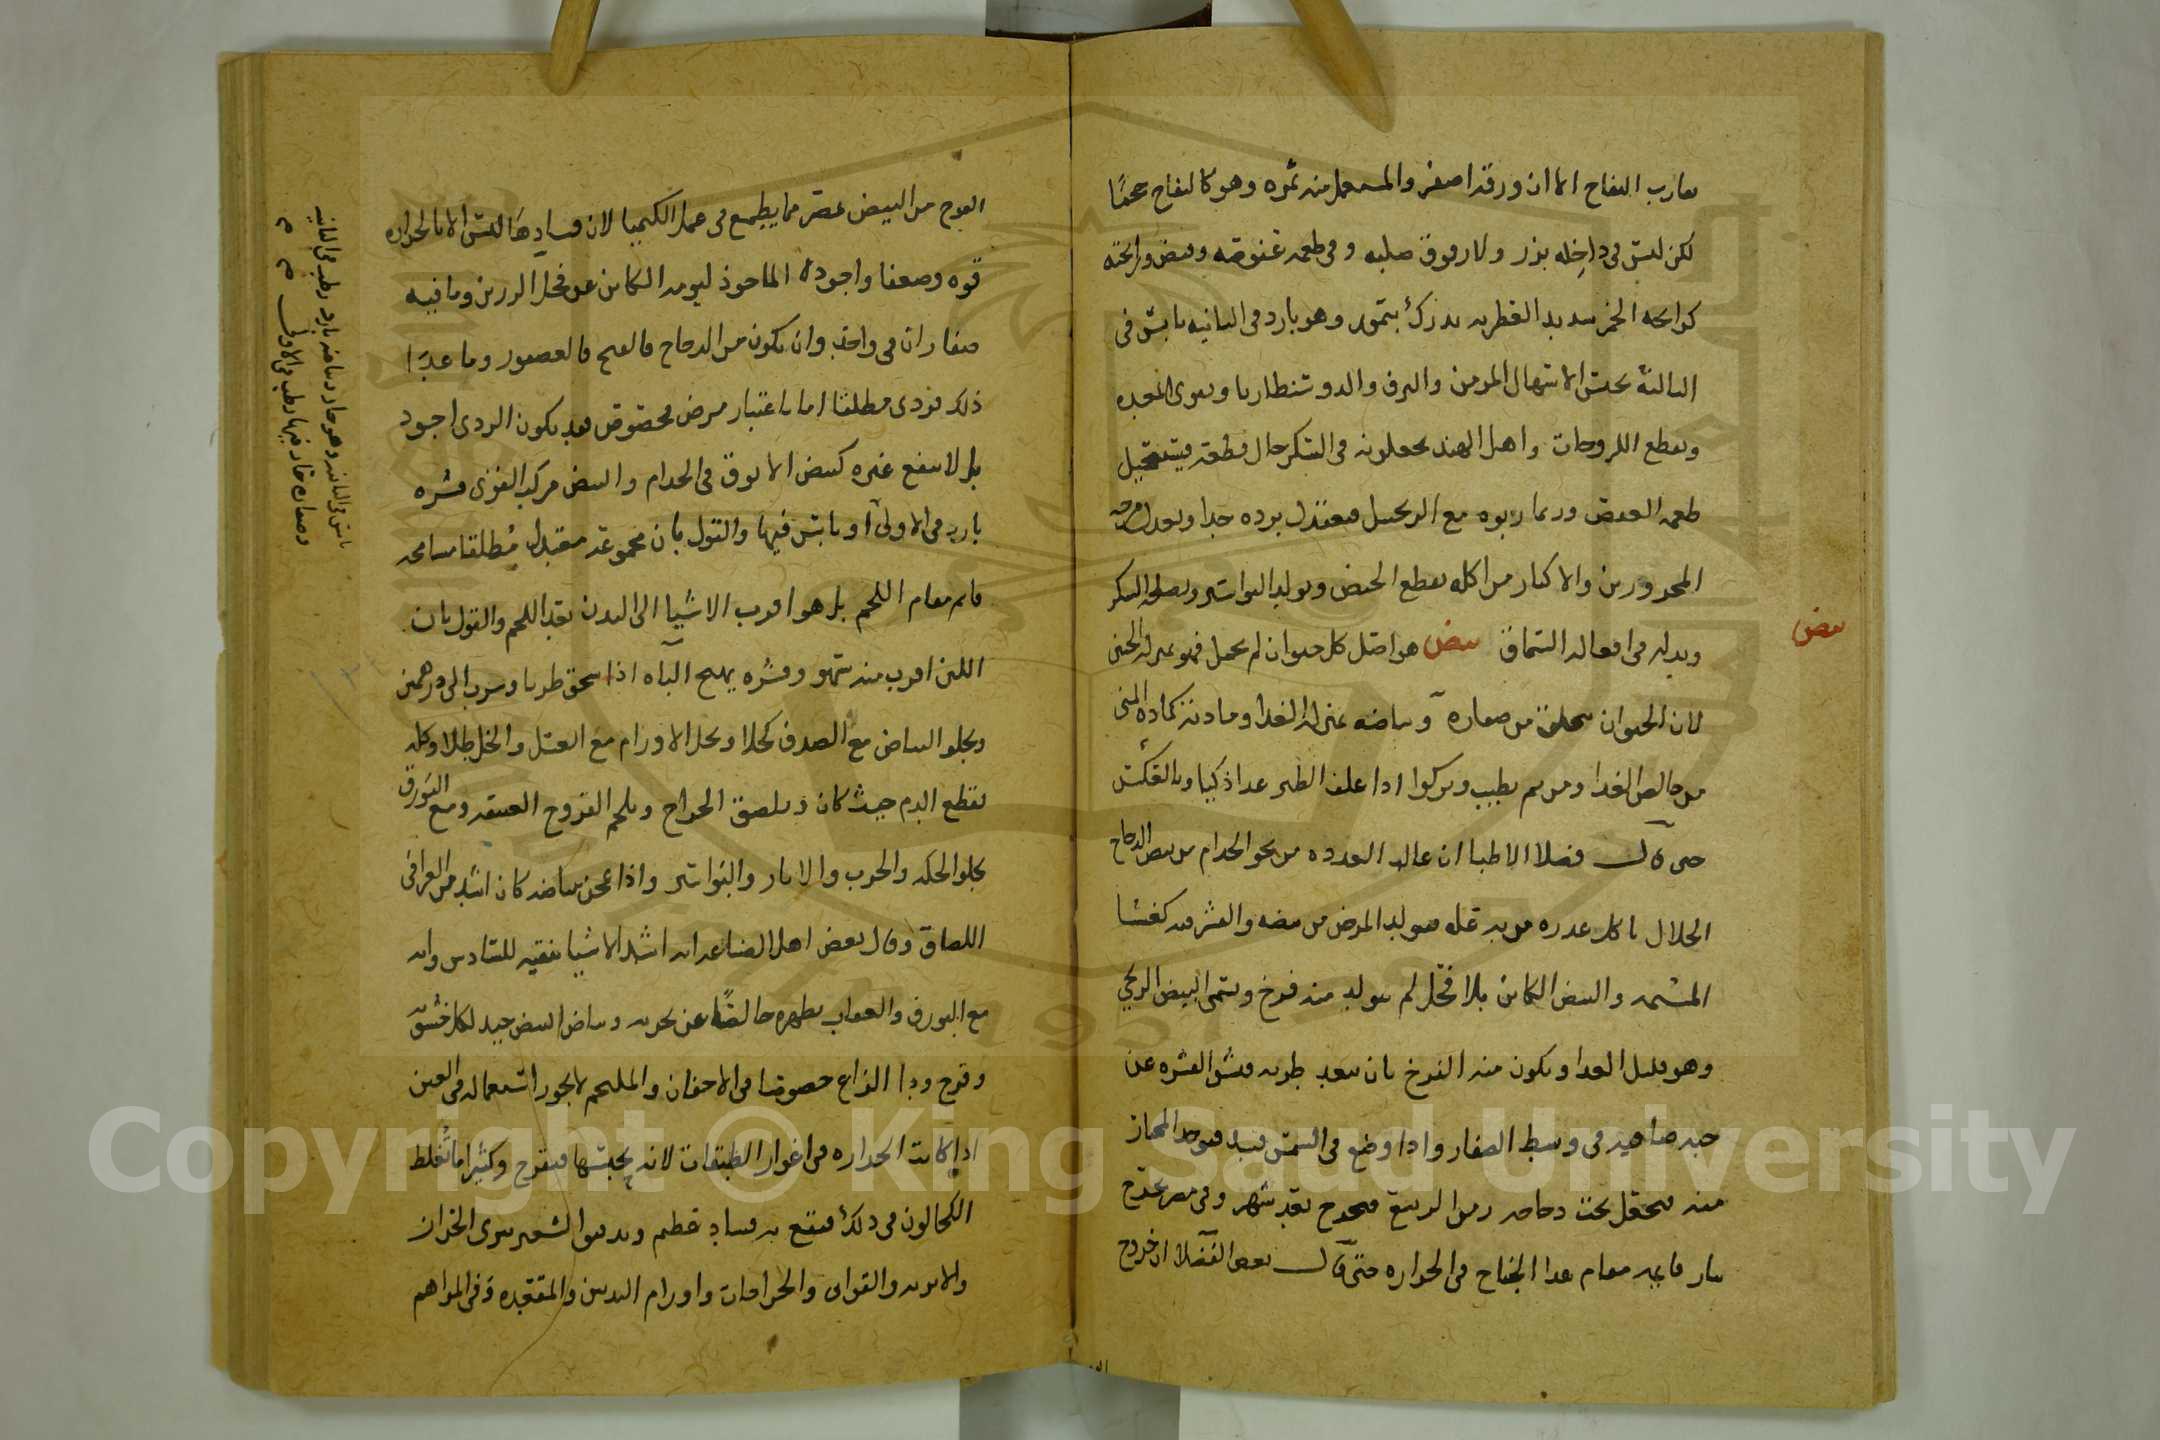 يقارب التفاح الا ان ورقه اصغر والمستعمل منه ثمره وهو كالتفاح حجمًا
لكن ليس في داخله بذر ولا رموق صلبه وفي طعمه عفوصه وقبض ورائحته
كرائحه الخمر شديد القطريه يدرك بتموز وهو بارد في الثانيه يابس في
الثالثة يحبس الاسهال المزمن والنزف والدوسنطاريا ويقوي المعده
ويقطع اللزوجات واهل الهند يجعلونه في السكر حال قطعه فيستحيل
طعمه العفص وربما ربوه مع الزنجبيل فيعتدل برده جدا ويعدل امزجه
المحرورين والاكثار من اكله يقطع الحيض ويولد البواسير ويصلحه السكر
وبدله في افعاله السماق بيض هو اصل كل حيوان لم يحمل فهو بمنزله الجنين
لان الحيوان يتخلق من صفاره وبياضه بمنزلة الغذا ومادته كماده المني
من خالص الغذا ومن ثم يطيب ويزكوا اذا علف الطير غذا ذكيا وبالعكس
حتى قال فضلا الاطبا ان غالب الغدده من نحو الجذام من بيض الدجاج
الجلال ياكل عذره من به علة فيولد المرض من بيضه والقشر منه كغشا
المشيمه والبيض الكائن بلا فحل لم يتولد منه فرخ ويسمى البيض الريحي
وهو قليل الغذا ويكون منه الفرخ بان يبعد طرية قبش القشره عن
حبه صاهيه في وسط الصفار واذا وضع في الشمس فسد فيوخذ المختار
منه فيجعل تحت دجاجه زمن الربيع فيخرج بعد شهر وفي مصر يخرج
بنار قايمه مقام هذا الجناح في الحراره حتى قال بعض الفضلا ان خروج
بيض
الفروج من البيض بمصر مما يطمع في عمل الكيميا لان فسادها ليس الا بالحراره
قوه وضعفا واجوده الماخوذ ليومه الكاين عن فحل الرزين وما فيه
صفاران في واحد وان يكون من الدجاج فالقبج فالعصفور وما عدا
ذلك فردي مطلقا اما باعتبار مرض مخصوص فقد يكون الردي اجود
بل لا ينفع غيره كبيض الانوق في الجذام والبيض مركب القوى قشره
بارد في الاولى او يابس فيها والقول بان مجموعه معتدل مطلقا مسامحه
قايم مقام اللحم بل هو اقرب الاشيا الى البدن بعد اللحم والقول بان
اللبن اقرب منه سهو وقشره يهيج الباه اذا سحق طريا وشرب الى درهمين
ويجلو البياض مع الصدف كحلا ويحلل الاورام مع العسل والخل طلا وكله
يقطع الدم حيث كان ويلصق الجراح ويلحم القروح العتيقه ومع البورق
يجلو الحكه والجرب والاثار والبواسير واذا عجن ببياضه كان اشد من الغرا في
اللصاق وقال بعض اهل الصناعه انه اشد الاشيا تنقيه للسادس وانه
مع البورق والعقاب يطهره خالصًا عن تجربه وبياض البيض جيد لكل خشونه
وقرح ودا الفراع خصوصا في الاجفان والملتحم لا يجوز استعماله في العين
اذا كانت الحراره في اغوار الطبقات لانه يحبسها فيقرح وكثيرا ما تغلط
الكحالون في ذلك فيقع به فساد عظيم وبدقيق الشعير يبري الخزاز
والابريه والقوابي والجراحات واورام الثديين والمقعده وفي المراهم
يابس في الثانيه وهو حار وبياضه بارد رطب في الثانيه
وصفاره حار فيها رطب في الاولى